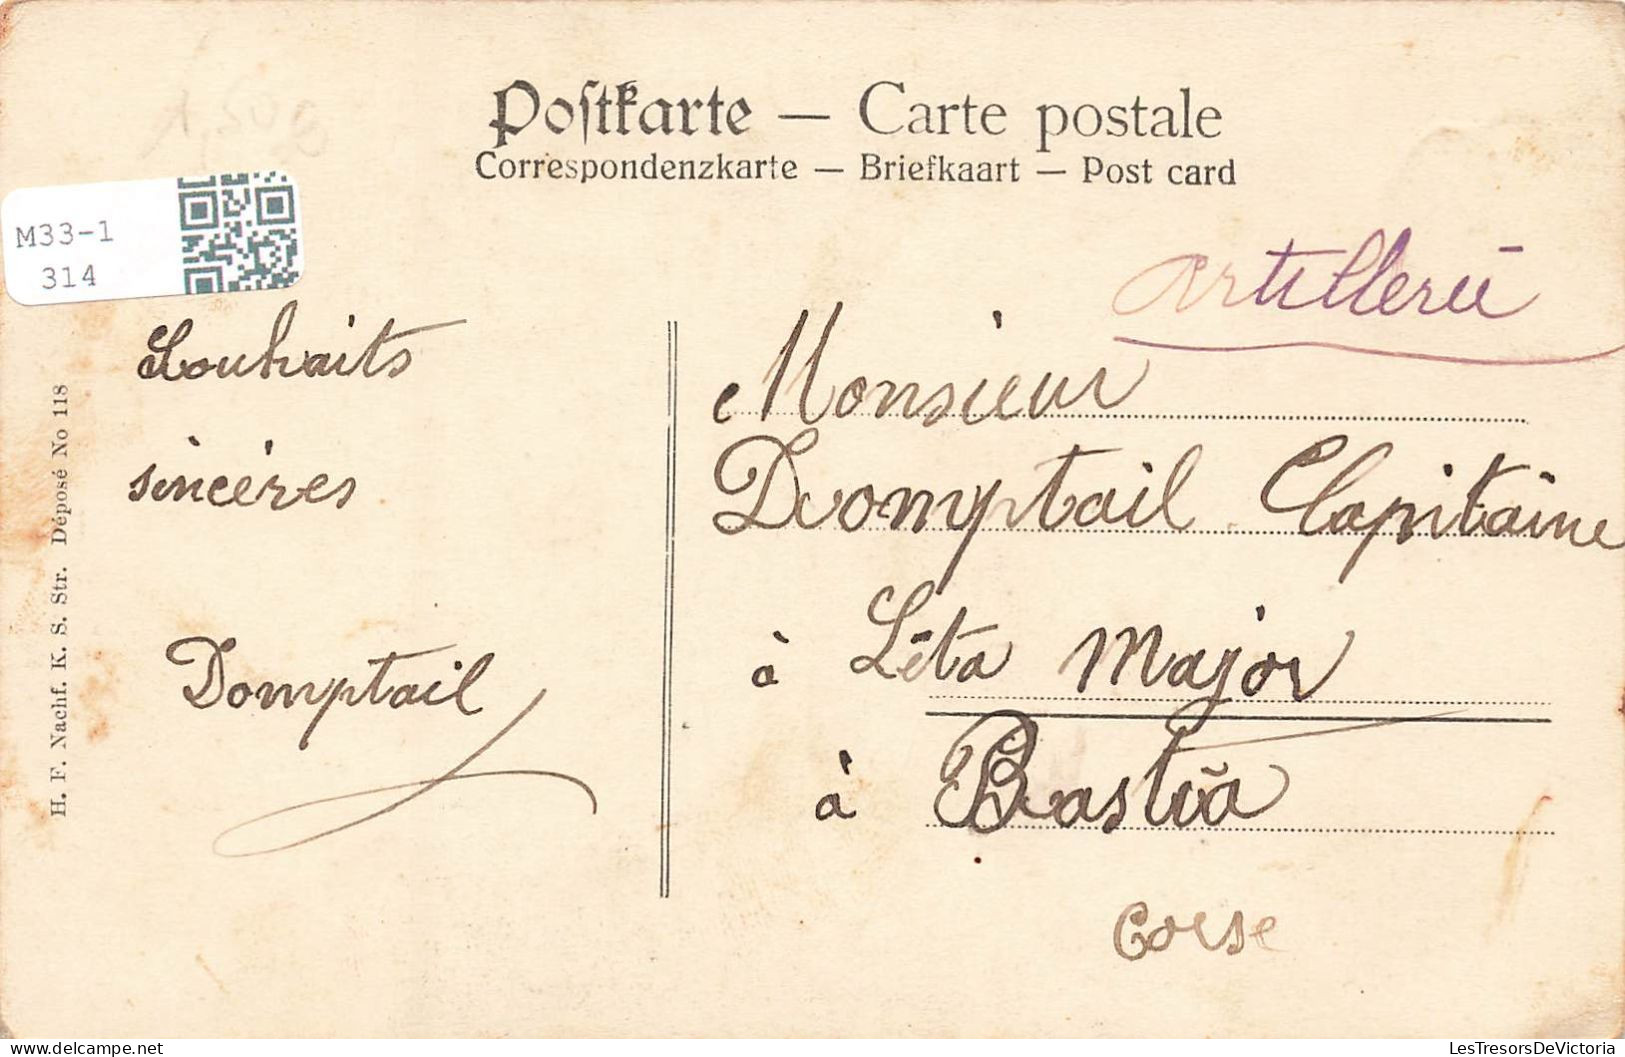 Postkarte — Carte postale
Correspondenzkarte — Briefkaart — Post card
M33-1
314
Artillerie
Souhaits
sincères
Domptail
Monsieur
Domptail Capitaine
à Léta Major
à Bastia
Corse
H. F. Nachf. K. S. Str. Déposé No 118
delcampe.net
LesTresorsDeVictoria